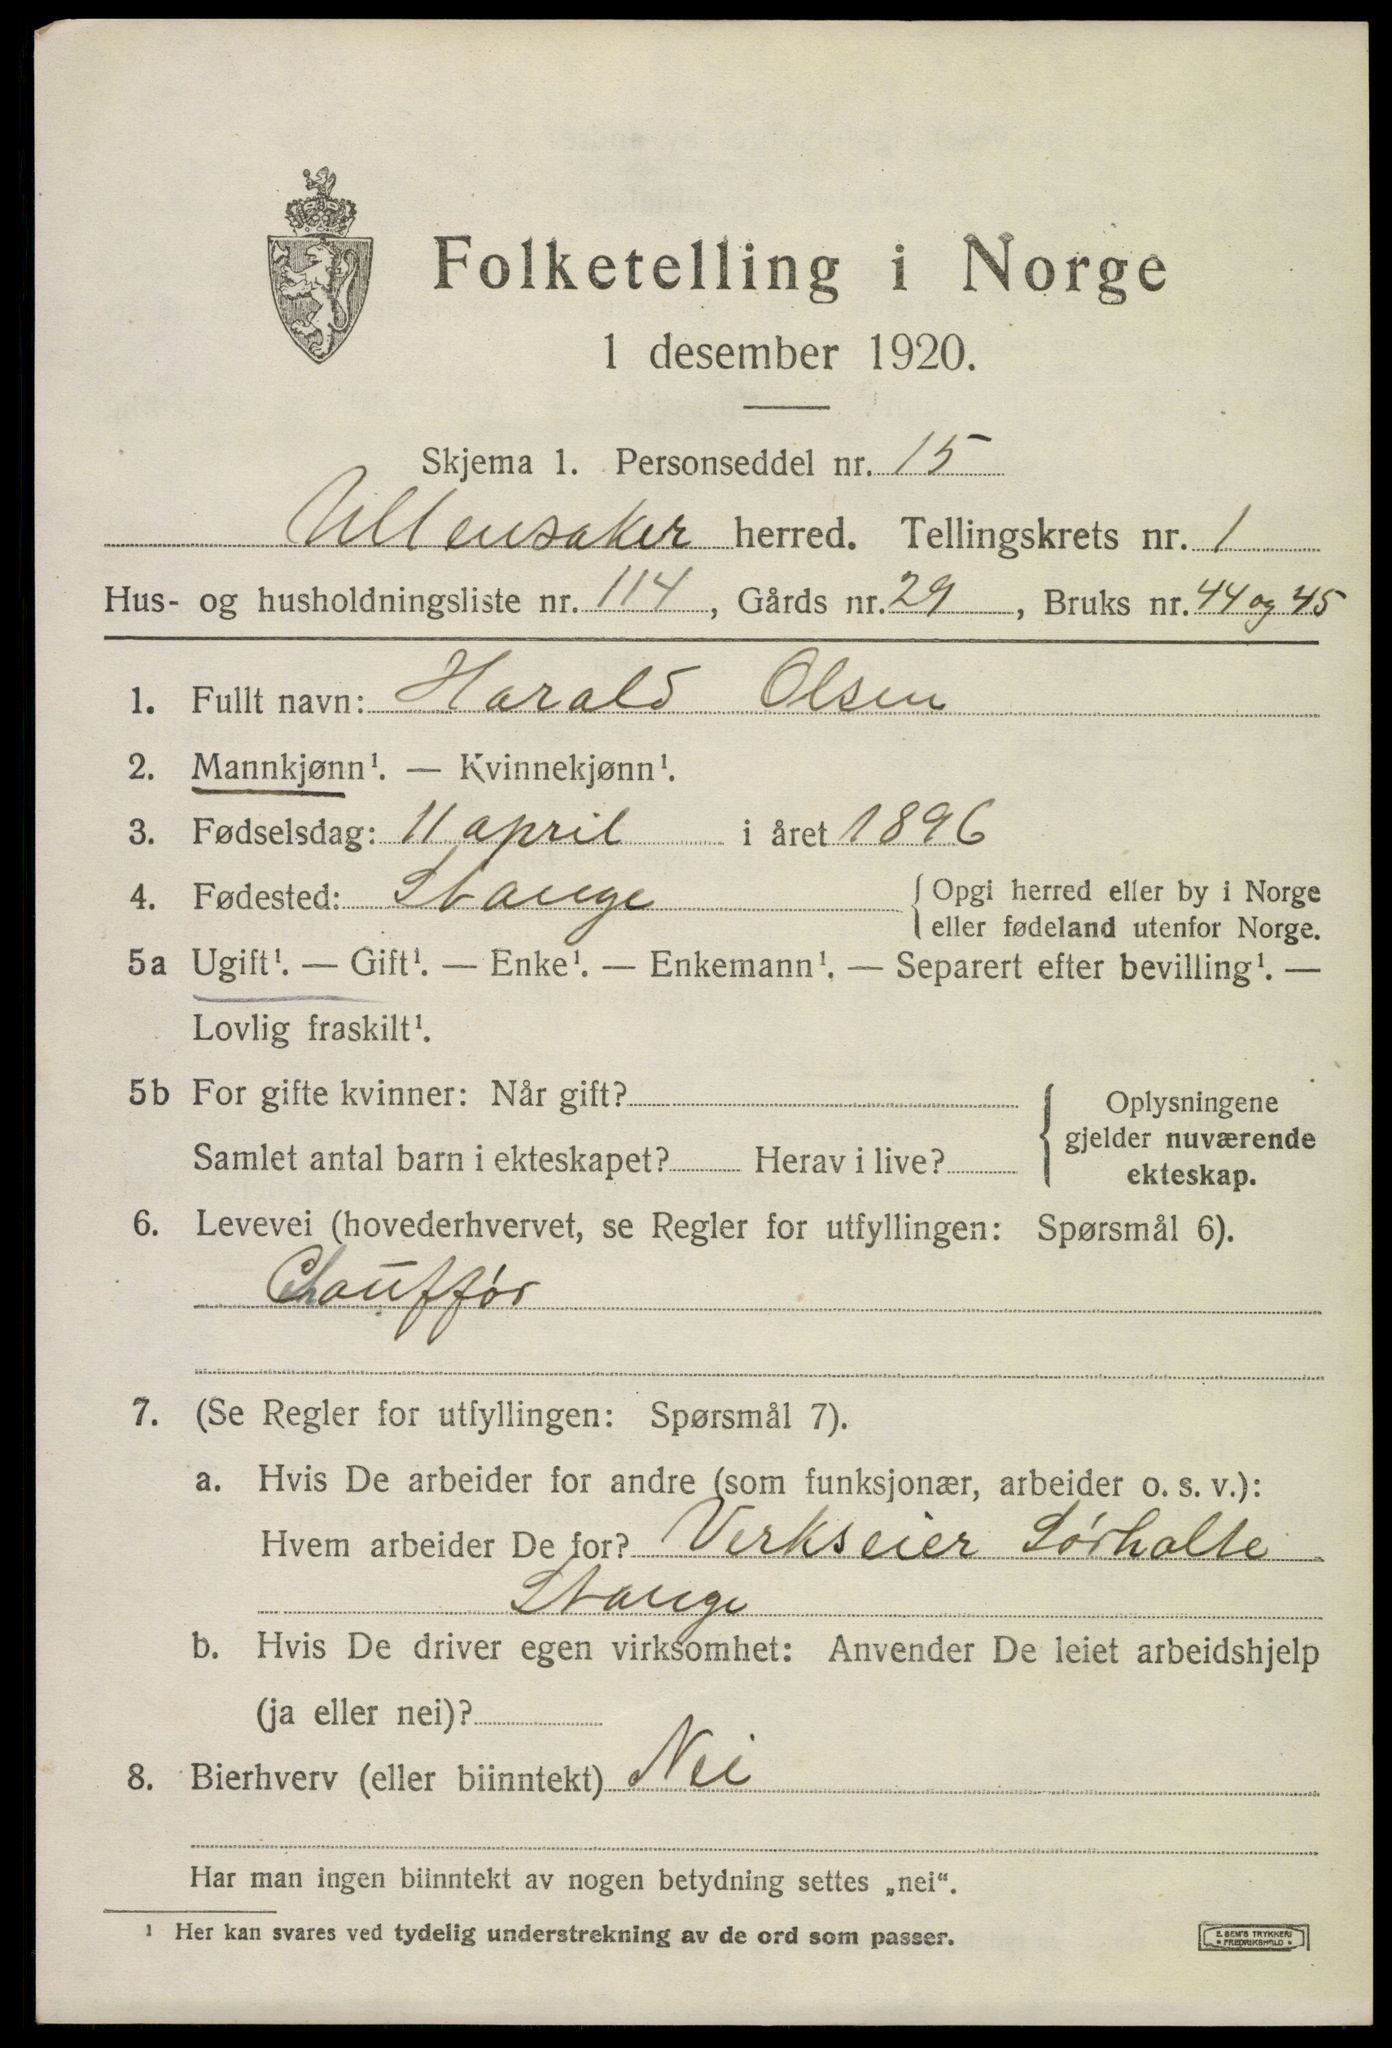 Folketelling i Norge
1 desember 1920.
Skjema 1. Personseddel nr. 15
Ullensaker herred. Tellingskrets nr. 1
Hus- og husholdningsliste nr. 114, Gårds nr. 29, Bruks nr. 44 og 45
1. Fullt navn: Harald Olsen
2. Mannkjønn¹. — Kvinnekjønn¹.
3. Fødselsdag: 11 april i året 1896
4. Fødested: Stange { Opgi herred eller by i Norge
eller fødeland utenfor Norge.
5a Ugift¹. — Gift¹. — Enke¹. — Enkemann¹. — Separert efter bevilling¹. —
Lovlig fraskilt¹.
5b For gifte kvinner: Når gift?
Samlet antal barn i ekteskapet? Herav i live?
{ Oplysningene
gjelder nuværende
ekteskap.
6. Levevei (hovederhvervet, se Regler for utfyllingen: Spørsmål 6).
Chauffør
7. (Se Regler for utfyllingen: Spørsmål 7).
a. Hvis De arbeider for andre (som funksjonær, arbeider o. s. v.):
Hvem arbeider De for? Verkseier Sørholte
Stange
b. Hvis De driver egen virksomhet: Anvender De leiet arbeidshjelp
(ja eller nei)?
8. Bierhverv (eller biinntekt) Nei
Har man ingen biinntekt av nogen betydning settes „nei“.
¹ Her kan svares ved tydelig understrekning av de ord som passer.
E. SEM'S TRYKKERI
• FREDRIKSHALD •